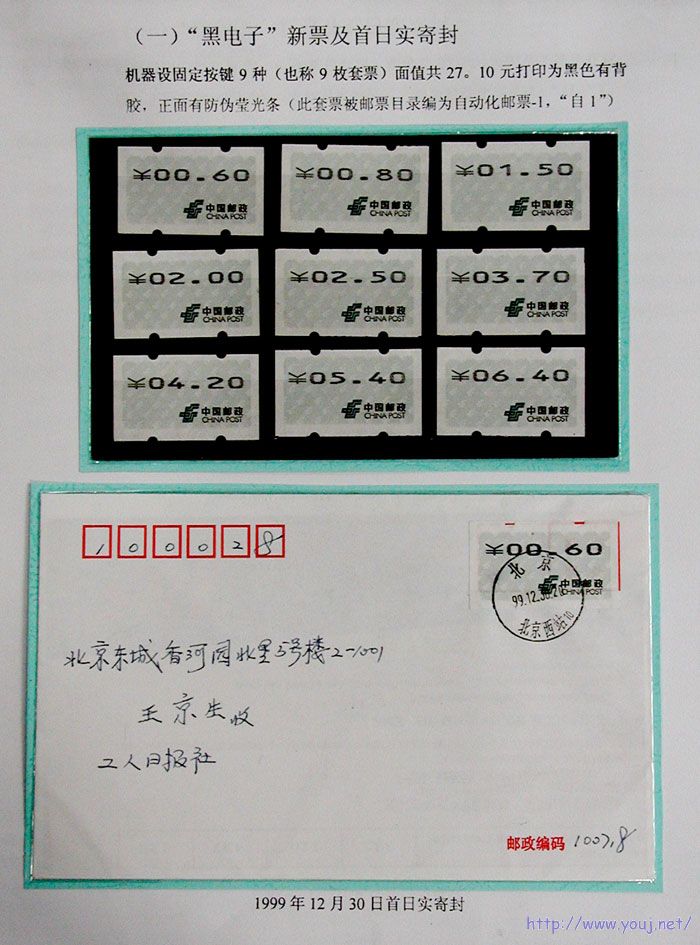 （一）“黑电子”新票及首日实寄封
机器设固定按键 9 种（也称 9 枚套票）面值共 27。10 元打印为黑色有背
胶，正面有防伪莹光条（此套票被邮票目录编为自动化邮票-1，“自 1”）
¥00.60
中国邮政
CHINA POST
¥00.80
中国邮政
CHINA POST
¥01.50
中国邮政
CHINA POST
¥02.00
中国邮政
CHINA POST
¥02.50
中国邮政
CHINA POST
¥03.70
中国邮政
CHINA POST
¥04.20
中国邮政
CHINA POST
¥05.40
中国邮政
CHINA POST
¥06.40
中国邮政
CHINA POST
100028
¥00.60
中国邮政
北京
99.12.30.20
北京西站 10
北京东城香河园北里3号楼2-1001
王京生收
工人日报社
邮政编码
1999 年 12 月 30 日首日实寄封
http://www.youj.net/